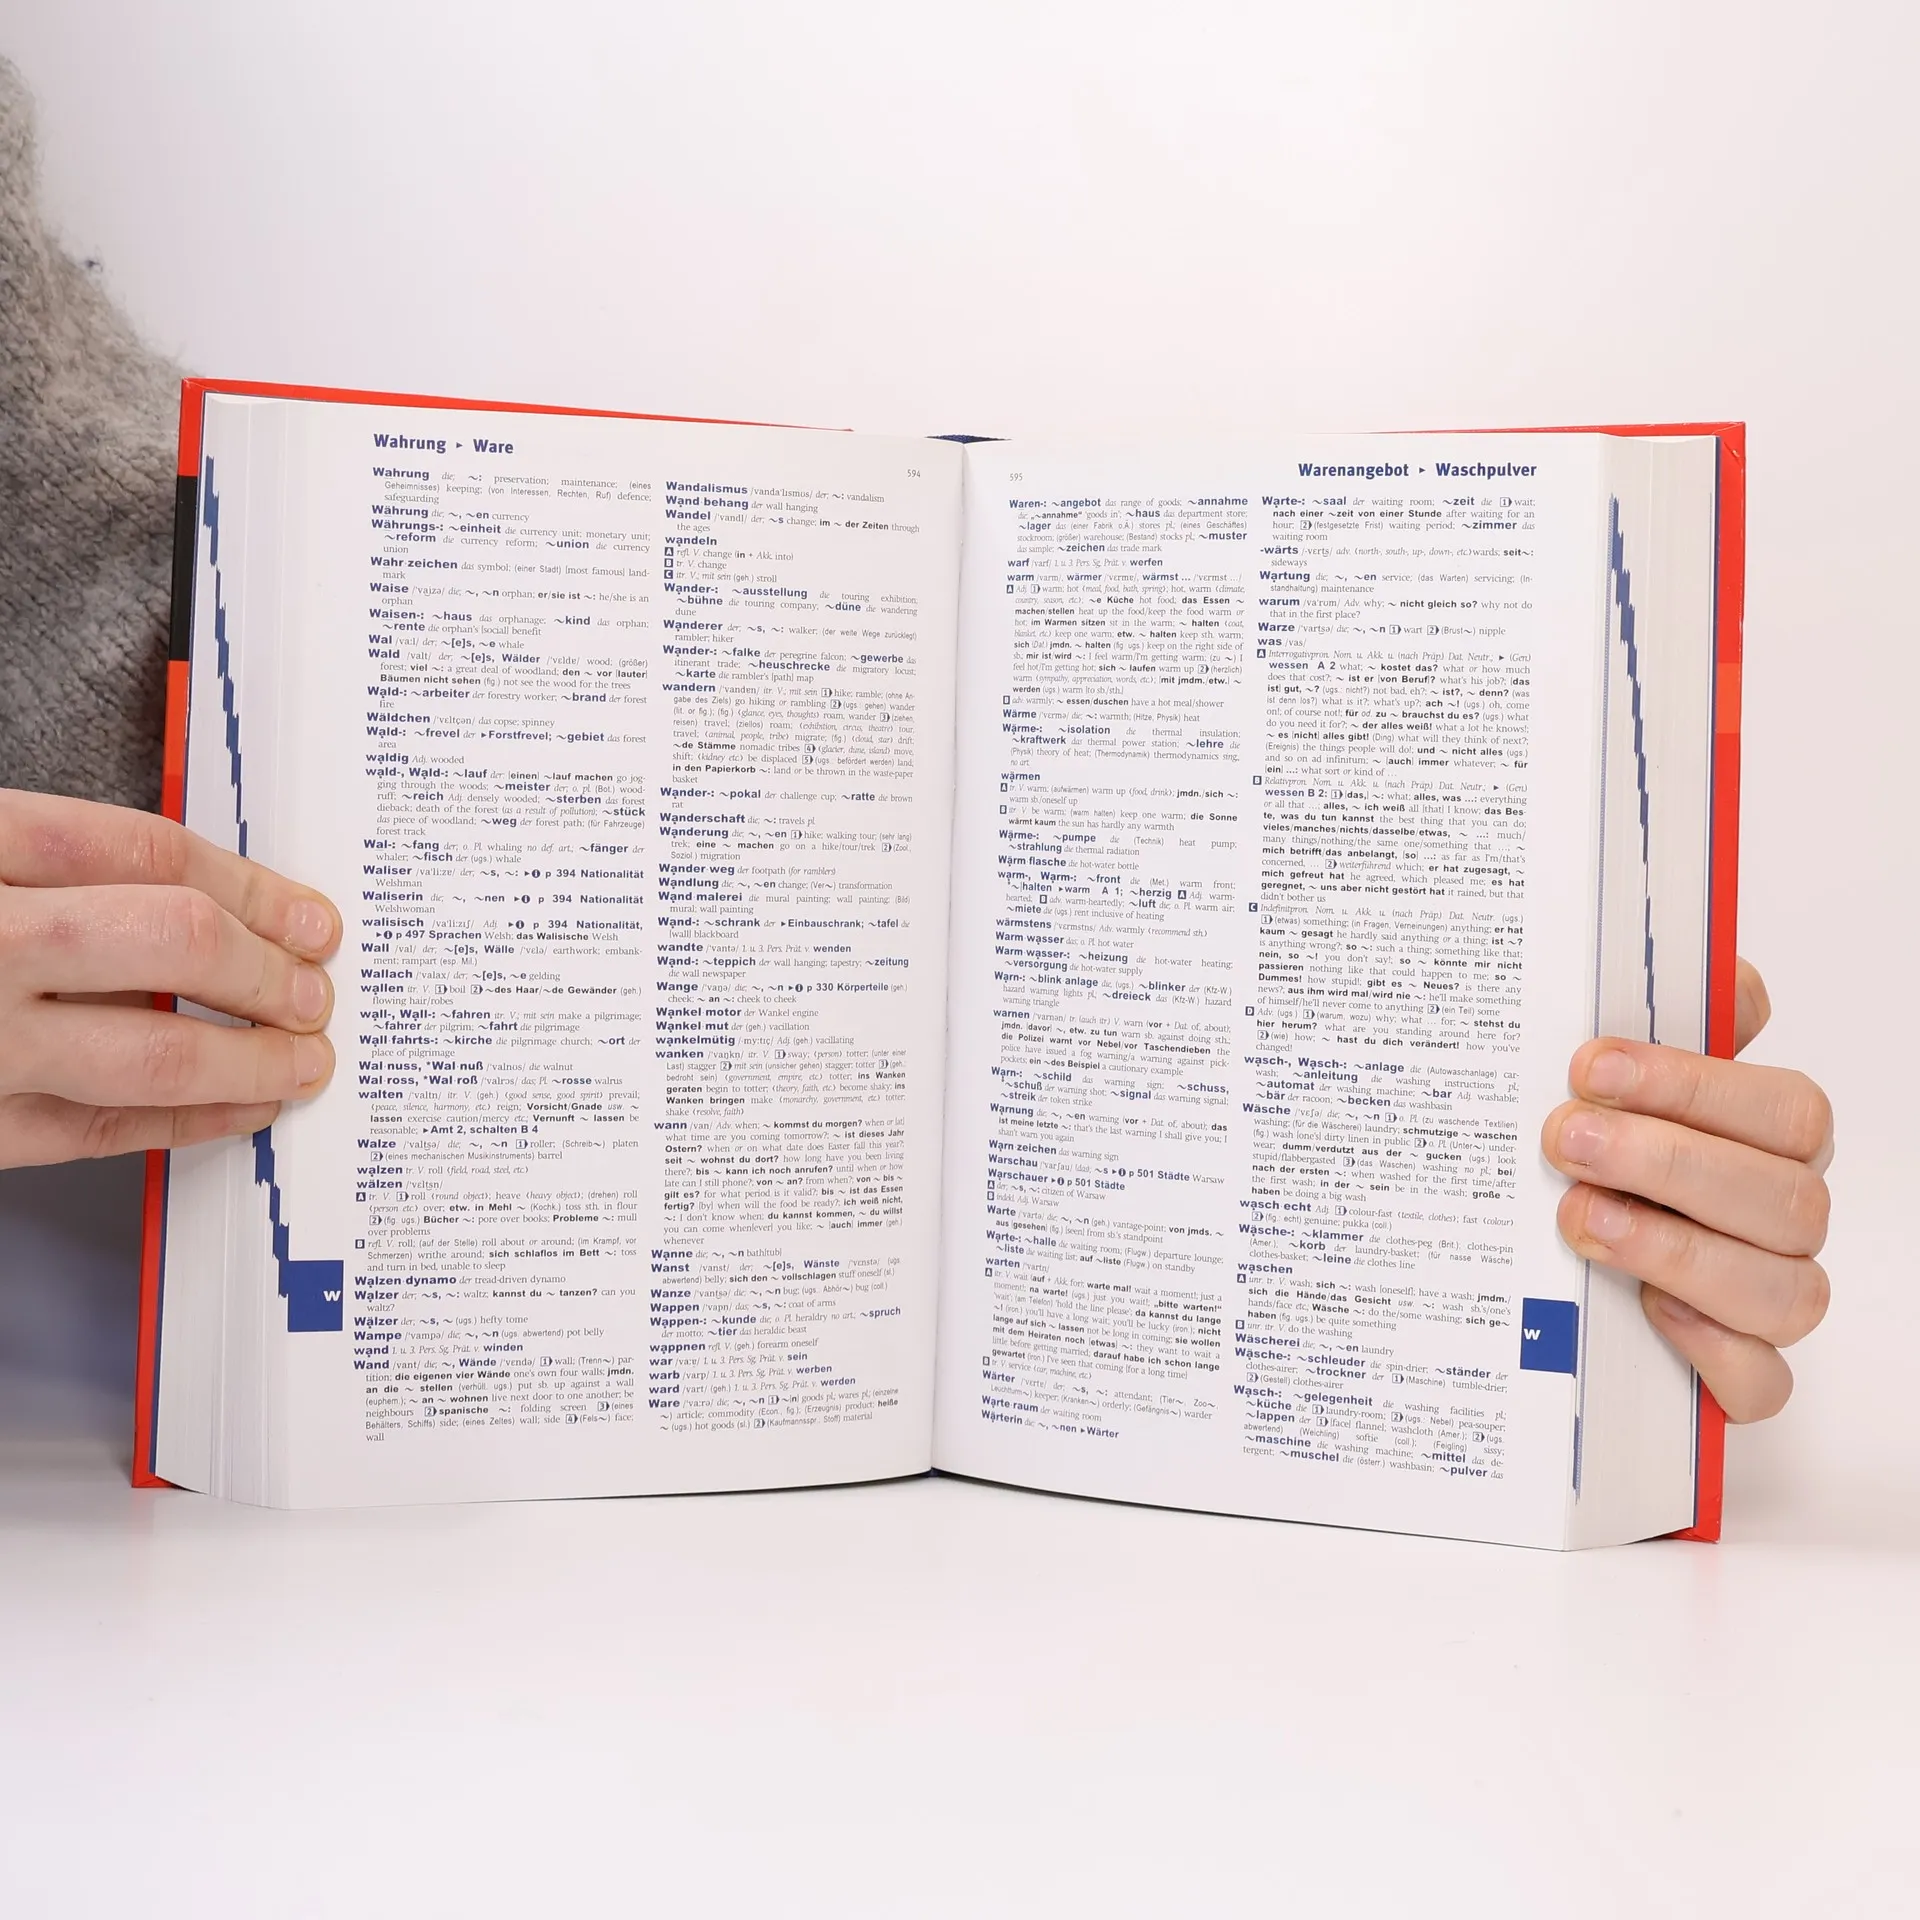 Wahrung ▸ Ware
594
Wahrung die; ~: preservation; maintenance; (eines
Geheimnisses) keeping; (von Interessen, Rechten, Ruf) defence;
safeguarding
Währung die; ~, ~en currency
Währungs-: ~einheit die currency unit; monetary unit;
~reform die currency reform; ~union die currency
union
Wahr·zeichen das symbol; (einer Stadt) [most famous] land-
mark
Waise /ˈvaɪzə/ die; ~, ~n orphan; er/sie ist ~: he/she is an
orphan
Waisen-: ~haus das orphanage; ~kind das orphan;
~rente die orphan's [social] benefit
Wal /vaːl/ der; ~[e]s, ~e whale
Wald /valt/ der; ~[e]s, Wälder /ˈvɛldɐ/ wood; (größer)
forest; viel ~: a great deal of woodland; den ~ vor [lauter]
Bäumen nicht sehen (fig.) not see the wood for the trees
Wald-: ~arbeiter der forestry worker; ~brand der forest
fire
Wäldchen /ˈvɛltçən/ das copse; spinney
Wald-: ~frevel der ▸Forstfrevel; ~gebiet das forest
area
waldig Adj. wooded
wald-, Wald-: ~lauf der: [einen] ~lauf machen go jog-
ging through the woods; ~meister der; o. Pl. (Bot.) wood-
ruff; ~reich Adj. densely wooded; ~sterben das forest
dieback; death of the forest (as a result of pollution); ~stück
das piece of woodland; ~weg der forest path; (für Fahrzeuge)
forest track
Wal-: ~fang der; o. Pl. whaling no def. art.; ~fänger der
whaler; ~fisch der (ugs.) whale
Waliser /vaˈliːzɐ/ der; ~s, ~: ▸❶ p 394 Nationalität
Welshman
Waliserin die; ~, ~nen ▸❶ p 394 Nationalität
Welshwoman
walisisch /vaˈliːzɪʃ/ Adj. ▸❶ p 394 Nationalität,
▸❶ p 497 Sprachen Welsh; das Walisische Welsh
Wall /val/ der; ~[e]s, Wälle /ˈvɛlə/ earthwork; embank-
ment; rampart (esp. Mil.)
Wallach /ˈvalax/ der; ~[e]s, ~e gelding
wallen itr. V. 1 boil 2 ~des Haar/~de Gewänder (geh.)
flowing hair/robes
wall-, Wall-: ~fahren itr. V.; mit sein make a pilgrimage;
~fahrer der pilgrim; ~fahrt die pilgrimage
Wall·fahrts-: ~kirche die pilgrimage church; ~ort der
place of pilgrimage
Wal·nuss, *Wal·nuß /ˈvalnʊs/ die walnut
Wal·ross, *Wal·roß /ˈvalrɔs/ das; Pl. ~rosse walrus
walten /ˈvaltn̩/ itr. V. (geh.) (good sense, good spirit) prevail;
(peace, silence, harmony, etc.) reign; Vorsicht/Gnade usw. ~
lassen exercise caution/mercy etc.; Vernunft ~ lassen be
reasonable; ▸Amt 2, schalten B 4
Walze /ˈvaltsə/ die; ~, ~n 1 roller; (Schreib~) platen
2 (eines mechanischen Musikinstruments) barrel
walzen tr. V. roll (field, road, steel, etc.)
wälzen /ˈvɛltsn̩/
A tr. V. 1 roll (round object); heave (heavy object); (drehen) roll
(person etc.) over; etw. in Mehl ~ (Kochk.) toss sth. in flour
2 (fig. ugs.) Bücher ~: pore over books; Probleme ~: mull
over problems
B refl. V. roll; (auf der Stelle) roll about or around; (im Krampf, vor
Schmerzen) writhe around; sich schlaflos im Bett ~: toss
and turn in bed, unable to sleep
Walzen·dynamo der tread-driven dynamo
Walzer der; ~s, ~: waltz; kannst du ~ tanzen? can you
waltz?
Wälzer der; ~s, ~ (ugs.) hefty tome
Wampe /ˈvampə/ die; ~, ~n (ugs. abwertend) pot belly
wand 1. u. 3. Pers. Sg. Prät. v. winden
Wand /vant/ die; ~, Wände /ˈvɛndə/ 1 wall; (Trenn~) par-
tition; die eigenen vier Wände one's own four walls; jmdn.
an die ~ stellen (verhüll. ugs.) put sb. up against a wall
(euphem.); ~ an ~ wohnen live next door to one another; be
neighbours 2 spanische ~: folding screen 3 (eines
Behälters, Schiffs) side; (eines Zeltes) wall; side 4 (Fels~) face;
wall
W
Wandalismus /vandaˈlɪsmʊs/ der; ~: vandalism
Wand·behang der wall hanging
Wandel /ˈvandl̩/ der; ~s change; im ~ der Zeiten through
the ages
wandeln
A refl. V. change (in + Akk. into)
B tr. V. change
C itr. V.; mit sein (geh.) stroll
Wander-: ~ausstellung die touring exhibition;
~bühne die touring company; ~düne die wandering
dune
Wanderer der; ~s, ~: walker; (der weite Wege zurücklegt)
rambler; hiker
Wander-: ~falke der peregrine falcon; ~gewerbe das
itinerant trade; ~heuschrecke die migratory locust;
~karte die rambler's [path] map
wandern /ˈvandɐn/ itr. V.; mit sein 1 hike; ramble; (ohne An-
gabe des Ziels) go hiking or rambling 2 (ugs.: gehen) wander
(lit. or fig.); (fig.) (glance, eyes, thoughts) roam, wander 3 (ziehen,
reisen) travel; (ziellos) roam; (exhibition, circus, theatre) tour,
travel; (animal, people, tribe) migrate; (fig.) (cloud, star) drift;
~de Stämme nomadic tribes 4 (glacier, dune, island) move,
shift; (kidney etc.) be displaced 5 (ugs.: befördert werden) land;
in den Papierkorb ~: land or be thrown in the waste-paper
basket
Wander-: ~pokal der challenge cup; ~ratte die brown
rat
Wanderschaft die; ~: travels pl.
Wanderung die; ~, ~en 1 hike; walking tour; (sehr lang)
trek; eine ~ machen go on a hike/tour/trek 2 (Zool.,
Soziol.) migration
Wander·weg der footpath (for ramblers)
Wandlung die; ~, ~en change; (Ver~) transformation
Wand·malerei die mural painting; wall painting; (Bild)
mural; wall painting
Wand-: ~schrank der ▸Einbauschrank; ~tafel die
[wall] blackboard
wandte /ˈvantə/ 1. u. 3. Pers. Prät. v. wenden
Wand-: ~teppich der wall hanging; tapestry; ~zeitung
die wall newspaper
Wange /ˈvaŋə/ die; ~, ~n ▸❶ p 330 Körperteile (geh.)
cheek; ~ an ~: cheek to cheek
Wankel·motor der Wankel engine
Wankel·mut der (geh.) vacillation
wankelmütig /-myːtɪç/ Adj. (geh.) vacillating
wanken /ˈvaŋkn̩/ itr. V. 1 sway; (person) totter; (unter einer
Last) stagger 2 mit sein (unsicher gehen) stagger; totter 3 (geh.:
bedroht sein) (government, empire, etc.) totter; ins Wanken
geraten begin to totter; (theory, faith, etc.) become shaky; ins
Wanken bringen make (monarchy, government, etc.) totter;
shake (resolve, faith)
wann /van/ Adv. when; ~ kommst du morgen? when or [at]
what time are you coming tomorrow?; ~ ist dieses Jahr
Ostern? when or on what date does Easter fall this year?;
seit ~ wohnst du dort? how long have you been living
there?; bis ~ kann ich noch anrufen? until when or how
late can I still phone?; von ~ an? from when?; von ~ bis ~
gilt es? for what period is it valid?; bis ~ ist das Essen
fertig? [by] when will the food be ready?; ich weiß nicht,
~: I don't know when; du kannst kommen, ~ du willst
you can come when[ever] you like; ~ [auch] immer (geh.)
whenever
Wanne die; ~, ~n bath[tub]
Wanst /vanst/ der; ~[e]s, Wänste /ˈvɛnstə/ (ugs.
abwertend) belly; sich den ~ vollschlagen stuff oneself (sl.)
Wanze /ˈvantsə/ die; ~, ~n bug; (ugs.: Abhör~) bug (coll.)
Wappen /ˈvapn̩/ das; ~s, ~: coat of arms
Wappen-: ~kunde die; o. Pl. heraldry no art.; ~spruch
der motto; ~tier das heraldic beast
wappnen refl. V. (geh.) forearm oneself
war /vaːɐ̯/ 1. u. 3. Pers. Sg. Prät. v. sein
warb /varp/ 1. u. 3. Pers. Sg. Prät. v. werben
ward /vart/ (geh.) 1. u. 3. Pers. Sg. Prät. v. werden
Ware /ˈvaːrə/ die; ~, ~n 1 ~[n] goods pl.; wares pl.; (einzelne
~) article; commodity (Econ., fig.); (Erzeugnis) product; heiße
~ (ugs.) hot goods (sl.) 2 (Kaufmannsspr.: Stoff) material
595
Warenangebot ▸ Waschpulver
Waren-: ~angebot das range of goods; ~annahme
die; „~annahme“ 'goods in'; ~haus das department store;
~lager das (einer Fabrik o.Ä.) stores pl.; (eines Geschäftes)
stockroom; (größer) warehouse; (Bestand) stocks pl.; ~muster
das sample; ~zeichen das trade mark
warf /varf/ 1. u. 3. Pers. Sg. Prät. v. werfen
warm /varm/, wärmer /ˈvɛrmɐ/, wärmst ... /ˈvɛrmst .../
A Adj. 1 warm; hot (meal, food, bath, spring); hot, warm (climate,
country, season, etc.); ~e Küche hot food; das Essen ~
machen/stellen heat up the food/keep the food warm or
hot; im Warmen sitzen sit in the warm; ~ halten (coat,
blanket, etc.) keep one warm; etw. ~ halten keep sth. warm;
sich (Dat.) jmdn. ~ halten (fig. ugs.) keep on the right side of
sb.; mir ist/wird ~: I feel warm/I'm getting warm; (zu ~) I
feel hot/I'm getting hot; sich ~ laufen warm up 2 (herzlich)
warm (sympathy, appreciation, words, etc.); [mit jmdm./etw.] ~
werden (ugs.) warm [to sb./sth.]
B adv. warmly; ~ essen/duschen have a hot meal/shower
Wärme /ˈvɛrmə/ die; ~: warmth; (Hitze, Physik) heat
Wärme-: ~isolation die thermal insulation;
~kraftwerk das thermal power station; ~lehre die
(Physik) theory of heat; (Thermodynamik) thermodynamics sing.,
no art.
wärmen
A tr. V. warm; (aufwärmen) warm up (food, drink); jmdn./sich ~:
warm sb./oneself up
B itr. V. be warm; (warm halten) keep one warm; die Sonne
wärmt kaum the sun has hardly any warmth
Wärme-: ~pumpe die (Technik) heat pump;
~strahlung die thermal radiation
Wärm·flasche die hot-water bottle
warm-, Warm-: ~front die (Met.) warm front;
*~|halten ▸warm A 1; ~herzig A Adj. warm-
hearted; B adv. warm-heartedly; ~luft die; o. Pl. warm air;
~miete die (ugs.) rent inclusive of heating
wärmstens /ˈvɛrmstn̩s/ Adv. warmly (recommend sth.)
Warm·wasser das; o. Pl. hot water
Warm·wasser-: ~heizung die hot-water heating;
~versorgung die hot-water supply
Warn-: ~blink·anlage die, (ugs.) ~blinker der (Kfz-W.)
hazard warning lights pl.; ~dreieck das (Kfz-W.) hazard
warning triangle
warnen /ˈvarnən/ tr. (auch itr.) V. warn (vor + Dat. of, about);
jmdn. [davor] ~, etw. zu tun warn sb. against doing sth.;
die Polizei warnt vor Nebel/vor Taschendieben the
police have issued a fog warning/a warning against pick-
pockets; ein ~des Beispiel a cautionary example
Warn-: ~schild das warning sign; ~schuss,
*~schuß der warning shot; ~signal das warning signal;
~streik der token strike
Warnung die; ~, ~en warning (vor + Dat. of, about); das
ist meine letzte ~: that's the last warning I shall give you; I
shan't warn you again
Warn·zeichen das warning sign
Warschau /ˈvarʃau/ (das); ~s ▸❶ p 501 Städte Warsaw
Warschauer ▸❶ p 501 Städte
A der; ~s, ~: citizen of Warsaw
B indekl. Adj. Warsaw
Warte /ˈvartə/ die; ~, ~n (geh.) vantage-point; von jmds. ~
aus [gesehen] (fig.) [seen] from sb.'s standpoint
Warte-: ~halle die waiting room; (Flugw.) departure lounge;
~liste die waiting list; auf ~liste (Flugw.) on standby
warten /ˈvartn̩/
A itr. V. wait (auf + Akk. for); warte mal! wait a moment!; just a
moment!; na warte! (ugs.) just you wait!; „bitte warten!“
'wait'; (am Telefon) 'hold the line please'; da kannst du lange
~! (iron.) you'll have a long wait; you'll be lucky (iron.); nicht
lange auf sich ~ lassen not be long in coming; sie wollen
mit dem Heiraten noch [etwas] ~: they want to wait a
little before getting married; darauf habe ich schon lange
gewartet (iron.) I've seen that coming [for a long time]
B tr. V. service (car, machine, etc.)
Wärter /ˈvɛrtɐ/ der; ~s, ~: attendant; (Tier~, Zoo~,
Leuchtturm~) keeper; (Kranken~) orderly; (Gefängnis~) warder
Warte·raum der waiting room
Wärterin die; ~, ~nen ▸Wärter
Warte-: ~saal der waiting room; ~zeit die 1 wait;
nach einer ~zeit von einer Stunde after waiting for an
hour; 2 (festgesetzte Frist) waiting period; ~zimmer das
waiting room
-wärts /-vɛrts/ adv. (north-, south-, up-, down-, etc.)wards; seit~:
sideways
Wartung die; ~, ~en service; (das Warten) servicing; (In-
standhaltung) maintenance
warum /vaˈrʊm/ Adv. why; ~ nicht gleich so? why not do
that in the first place?
Warze /ˈvartsə/ die; ~, ~n 1 wart 2 (Brust~) nipple
was /vas/
A Interrogativpron. Nom. u. Akk. u. (nach Präp.) Dat. Neutr.; ▸ (Gen.)
wessen A 2 what; ~ kostet das? what or how much
does that cost?; ~ ist er [von Beruf]? what's his job?; [das
ist] gut, ~? (ugs.: nicht?) not bad, eh?; ~ ist?, ~ denn? (was
ist denn los?) what is it?; what's up?; ach ~! (ugs.) oh, come
on!; of course not!; für od. zu ~ brauchst du es? (ugs.) what
do you need it for?; ~ der alles weiß! what a lot he knows!;
~ es [nicht] alles gibt! (Ding) what will they think of next?;
(Ereignis) the things people will do!; und ~ nicht alles (ugs.)
and so on ad infinitum; ~ [auch] immer whatever; ~ für
[ein] ...: what sort or kind of ...
B Relativpron. Nom. u. Akk. u. (nach Präp.) Dat. Neutr.; ▸ (Gen.)
wessen B 2: 1 [das,] ~: what; alles, was ...: everything
or all that ...; alles, ~ ich weiß all [that] I know; das Bes-
te, was du tun kannst the best thing that you can do;
vieles/manches/nichts/dasselbe/etwas, ~ ...: much/
many things/nothing/the same one/something that ...; ~
mich betrifft/das anbelangt, [so] ...: as far as I'm/that's
concerned, ... 2 weiterführend which; er hat zugesagt, ~
mich gefreut hat he agreed, which pleased me; es hat
geregnet, ~ uns aber nicht gestört hat it rained, but that
didn't bother us
C Indefinitpron. Nom. u. Akk. u. (nach Präp.) Dat. Neutr. (ugs.)
1 (etwas) something; (in Fragen, Verneinungen) anything; er hat
kaum ~ gesagt he hardly said anything or a thing; ist ~?
is anything wrong?; so ~: such a thing; something like that;
nein, so ~! you don't say!; so ~ könnte mir nicht
passieren nothing like that could happen to me; so ~
Dummes! how stupid!; gibt es ~ Neues? is there any
news?; aus ihm wird mal/wird nie ~: he'll make something
of himself/he'll never come to anything 2 (ein Teil) some
D Adv. (ugs.) 1 (warum, wozu) why; what ... for; ~ stehst du
hier herum? what are you standing around here for?
2 (wie) how; ~ hast du dich verändert! how you've
changed!
wasch-, Wasch-: ~anlage die (Autowaschanlage) car-
wash; ~anleitung die washing instructions pl.;
~automat der washing machine; ~bar Adj. washable;
~bär der racoon; ~becken das washbasin
Wäsche /ˈvɛʃə/ die; ~, ~n 1 o. Pl. (zu waschende Textilien)
washing; (für die Wäscherei) laundry; schmutzige ~ waschen
(fig.) wash [one's] dirty linen in public 2 o. Pl. (Unter~) under-
wear; dumm/verdutzt aus der ~ gucken (ugs.) look
stupid/flabbergasted 3 (das Waschen) washing no pl.; bei/
nach der ersten ~: when washed for the first time/after
the first wash; in der ~ sein be in the wash; große ~
haben be doing a big wash
wasch·echt Adj. 1 colour-fast (textile, clothes); fast (colour)
2 (fig.: echt) genuine; pukka (coll.)
Wäsche-: ~klammer die clothes-peg (Brit.); clothes-pin
(Amer.); ~korb der laundry-basket; (für nasse Wäsche)
clothes-basket; ~leine die clothes line
waschen
A unr. tr. V. wash; sich ~: wash [oneself], have a wash; jmdm./
sich die Hände/das Gesicht usw. ~: wash sb.'s/one's
hands/face etc.; Wäsche ~: do the/some washing; sich ge~
haben (fig. ugs.) be quite something
B unr. itr. V. do the washing
Wäscherei die; ~, ~en laundry
Wäsche-: ~schleuder die spin-drier; ~ständer der
clothes-airer; ~trockner der 1 (Maschine) tumble-drier;
2 (Gestell) clothes-airer
Wasch-: ~gelegenheit die washing facilities pl.;
~küche die 1 laundry-room; 2 (ugs.: Nebel) pea-souper;
~lappen der 1 [face] flannel; washcloth (Amer.); 2 (ugs.
abwertend) (Weichling) softie (coll.); (Feigling) sissy;
~maschine die washing machine; ~mittel das de-
tergent; ~muschel die (österr.) washbasin; ~pulver das
W